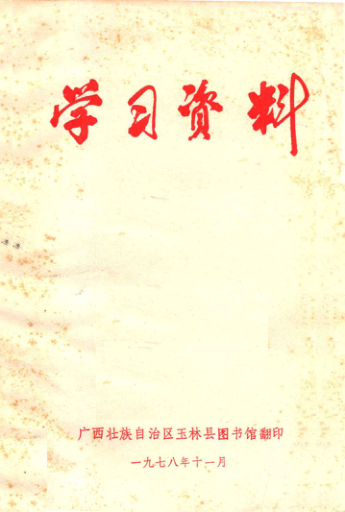 学习资料
广西壮族自治区玉林县图书馆翻印
一九七八年十一月